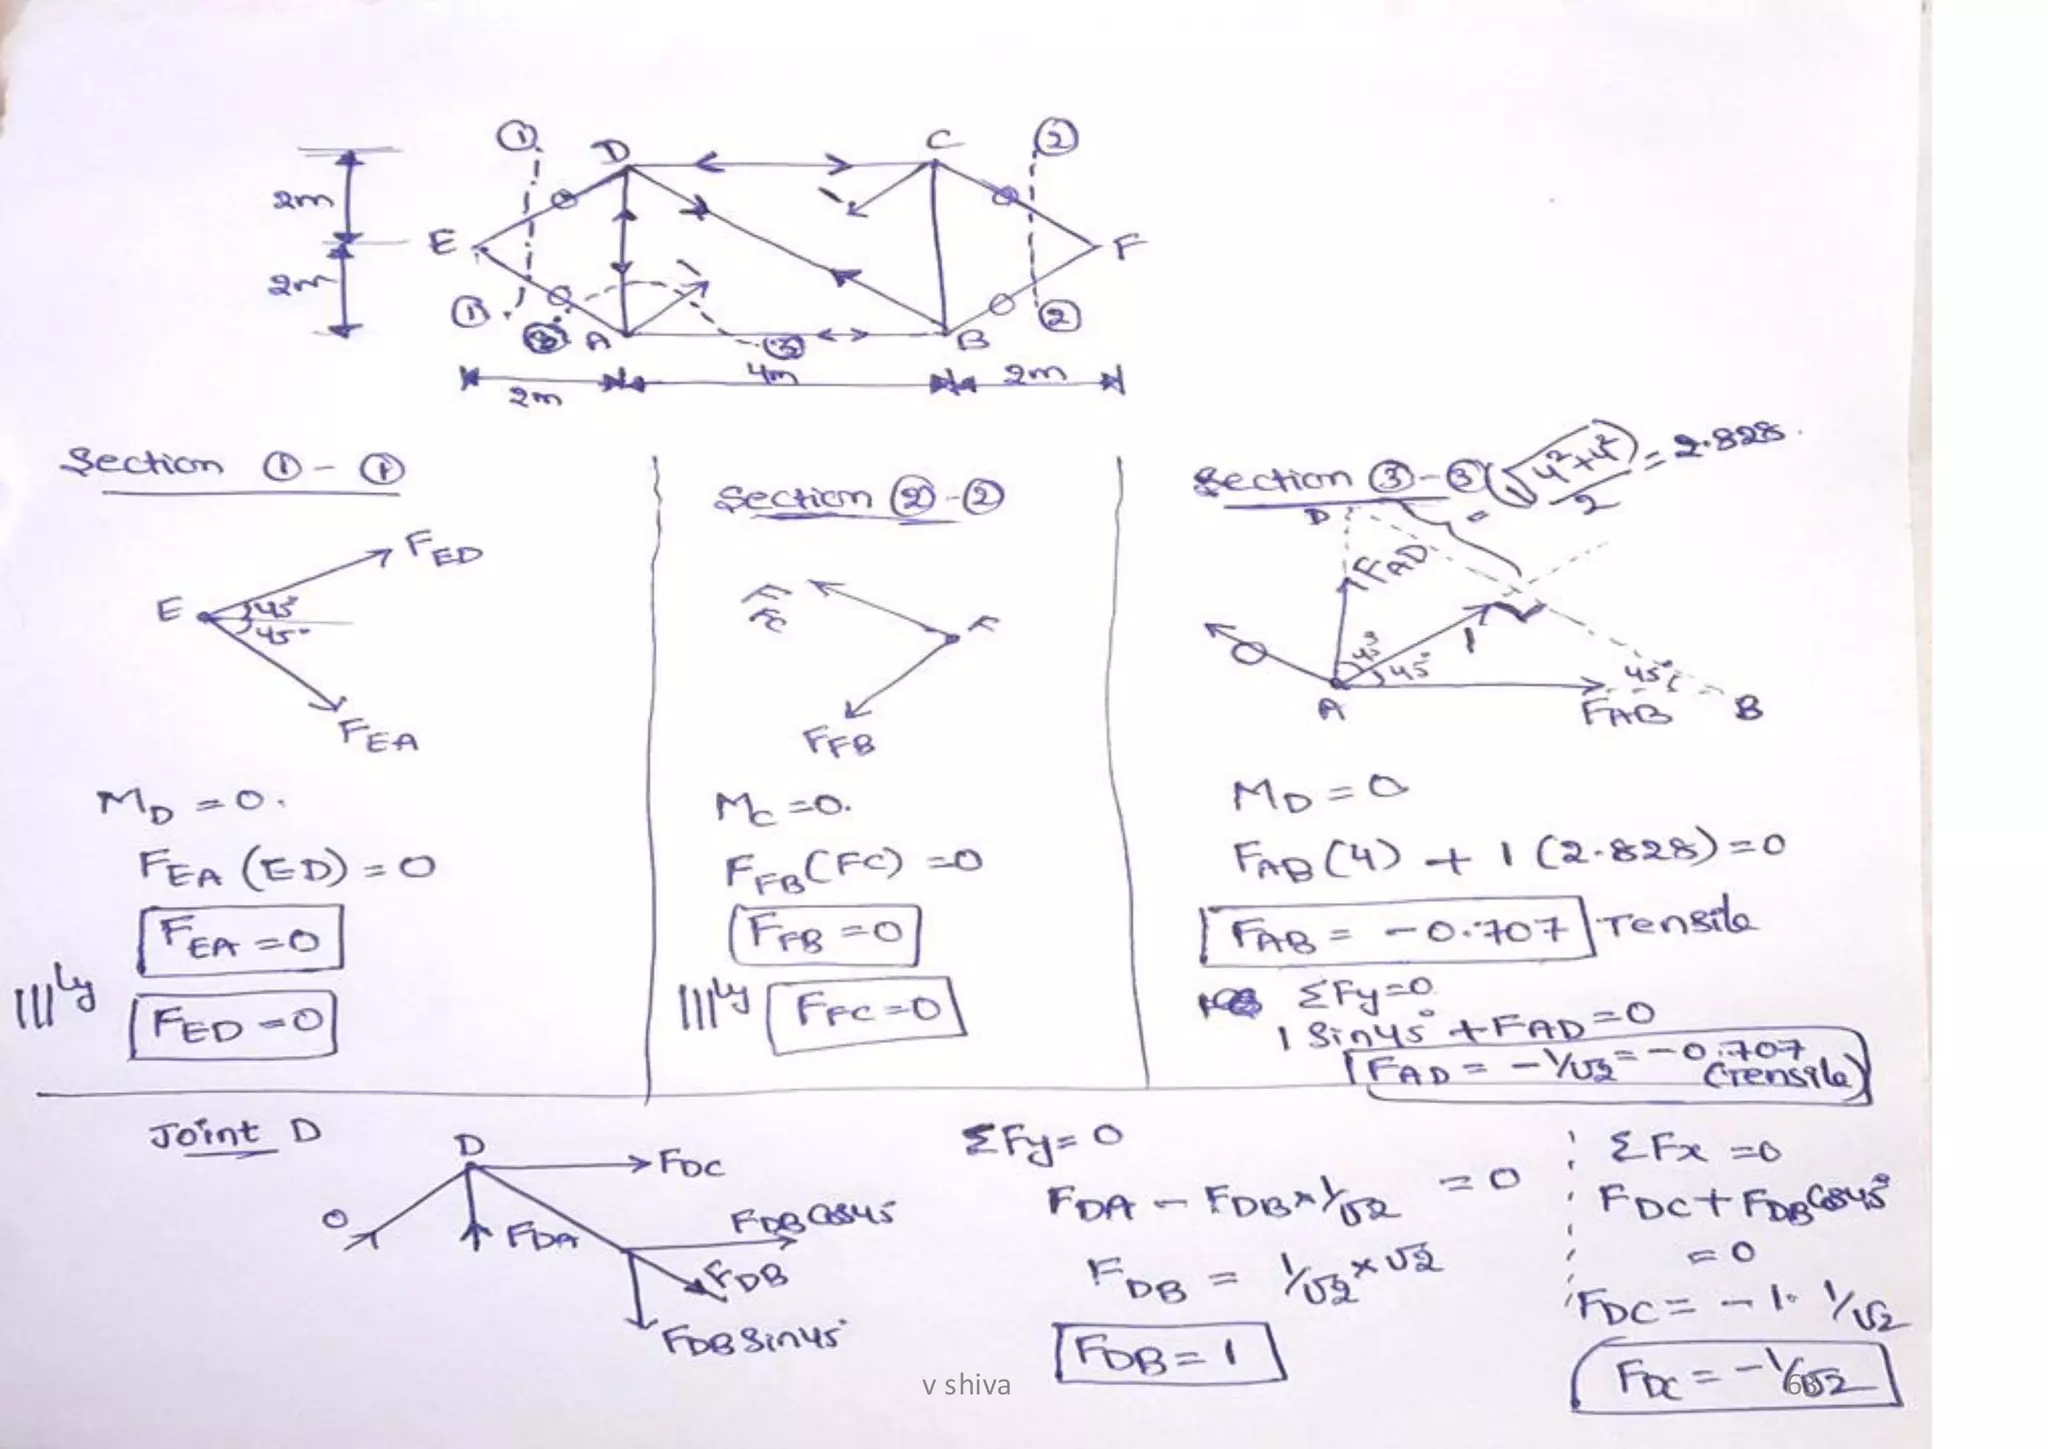 ① D C ②
2m
E F
2m
① ③ A ③ B ②
2m 4m 2m
Section ①-①
F_ED
E 45° 45°
F_EA
M_D = 0.
F_EA (ED) = 0
F_EA = 0
|||ly F_ED = 0
Section ②-②
F_FC F
F_FB
M_C = 0.
F_FB (FC) = 0
F_FB = 0
|||ly F_FC = 0
Section ③-③ (√4²+4²)/2 = 2.828.
D
F_AD
45° 45° 1 45°
A F_AB B
M_D = 0
F_AB (4) + 1 (2.828) = 0
F_AB = -0.707 Tensile
ΣFy = 0
1 Sin45° + F_AD = 0
F_AD = -1/√2 = -0.707 (Tensile)
Joint D
D F_DC
0 F_DA F_DB Cos45
F_DB
F_DB Sin45°
ΣFy = 0
F_DA - F_DB × 1/√2 = 0
F_DB = 1/√2 × √2
F_DB = 1
ΣFx = 0
F_DC + F_DB Cos45°
= 0
F_DC = -1. 1/√2
F_DC = -1/√2
v shiva